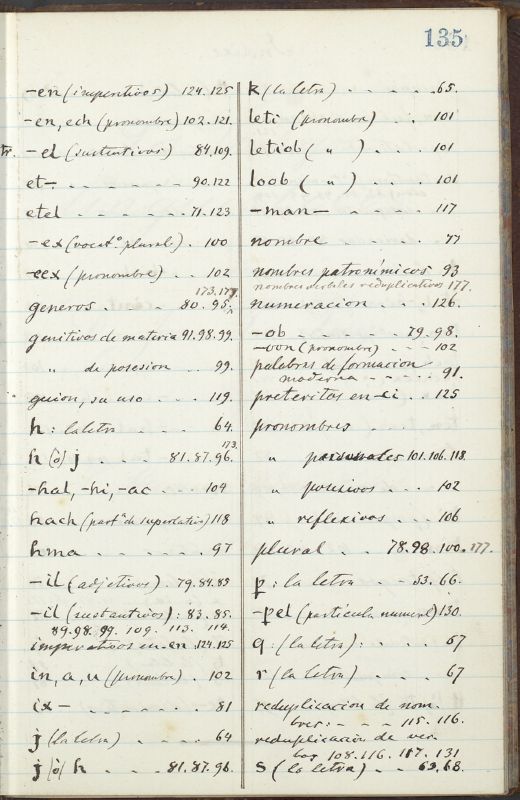 135
-en (imperativos) 124.125
-en, ech (pronombre) 102.121.
tr. -el (sustantivos) 84.109.
et- - - - - - - 90.122
etel - - - - - 71.123
-ex (vocat.º plural) . 100
-eex (pronombre) . . 102
173.177.
generos . - - - - 80.95.
genitivos de materia 91.98.99.
" de posesion . . 99.
guion, su uso - - - 119.
h : la letra - - - - 64.
173.
h (ó) j . . . . 81.87.96.
-hal, -hi, -ac - - . 104
hach (part.ª de superlativo) 118
hma . - - - - - . 97
-il (adjetivos) . 79.84.89
-il (sustantivos) : 83.85.
89.98.99.109.113.114.
imperativos en -en .124.125
in, a, u (pronombre) . 102
ix- - - - - - - 81
j (la letra) . - - - . 64
j (ó) h . . . . 81.87.96.
k (la letra) - - - - - .65.
leti (pronombre) . . 101
letiob ( " ) . . . 101
loob ( " ) . . . . 101
-man- - - - - - 117
nombre - - . . 77
nombres patronímicos 93
nombres verbales reduplicativos 177.
numeracion . . . . 126.
-ob - - - - - - 79.98.
-oon (pronombre) . - - - 102
palabras de formacion
moderna - - - - - 91.
preteritos en -ci . . 125
pronombres . - - -
" personales 101.106.118.
" posesivos . . . 102
" reflexivos . . . 106
plural . . 78.98.100.177.
p : la letra . - - 53.66.
-pel (partícula numeral) 130.
q : (la letra) : . . . 67
r (la letra) . . . . 67
reduplicacion de nom-
bres: - - - 115.116.
reduplicacion de ver-
bos 108.116.117.131
s (la letra) - - - 63.68.